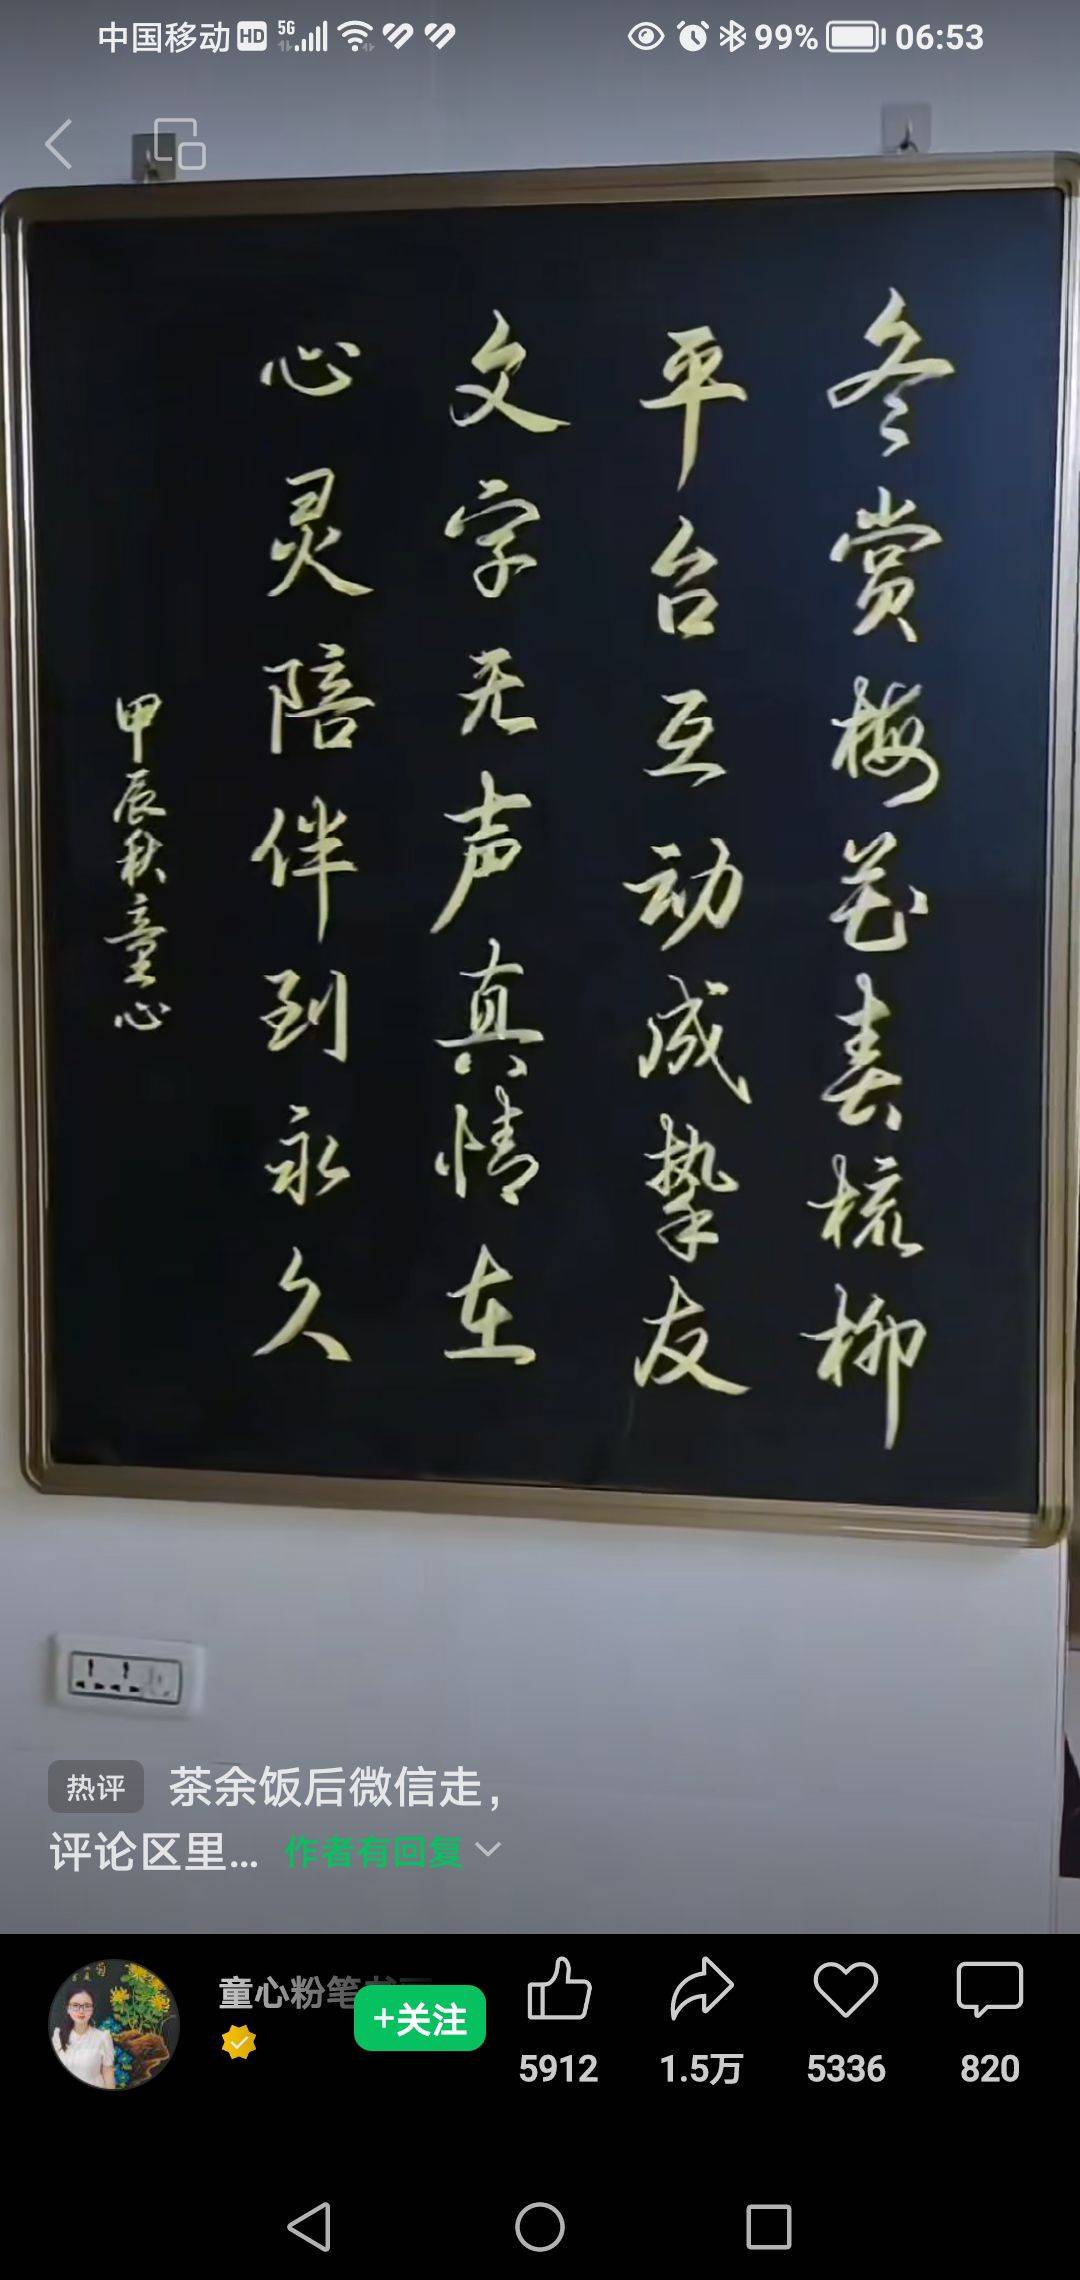 中国移动 HD 5G 99% 06:53
冬赏梅花春梳柳
平台互动成挚友
文字无声真情在
心灵陪伴到永久
甲辰秋童心
热评 茶余饭后微信走，
评论区里... 作者有回复
童心粉笔
+关注
5912 1.5万 5336 820